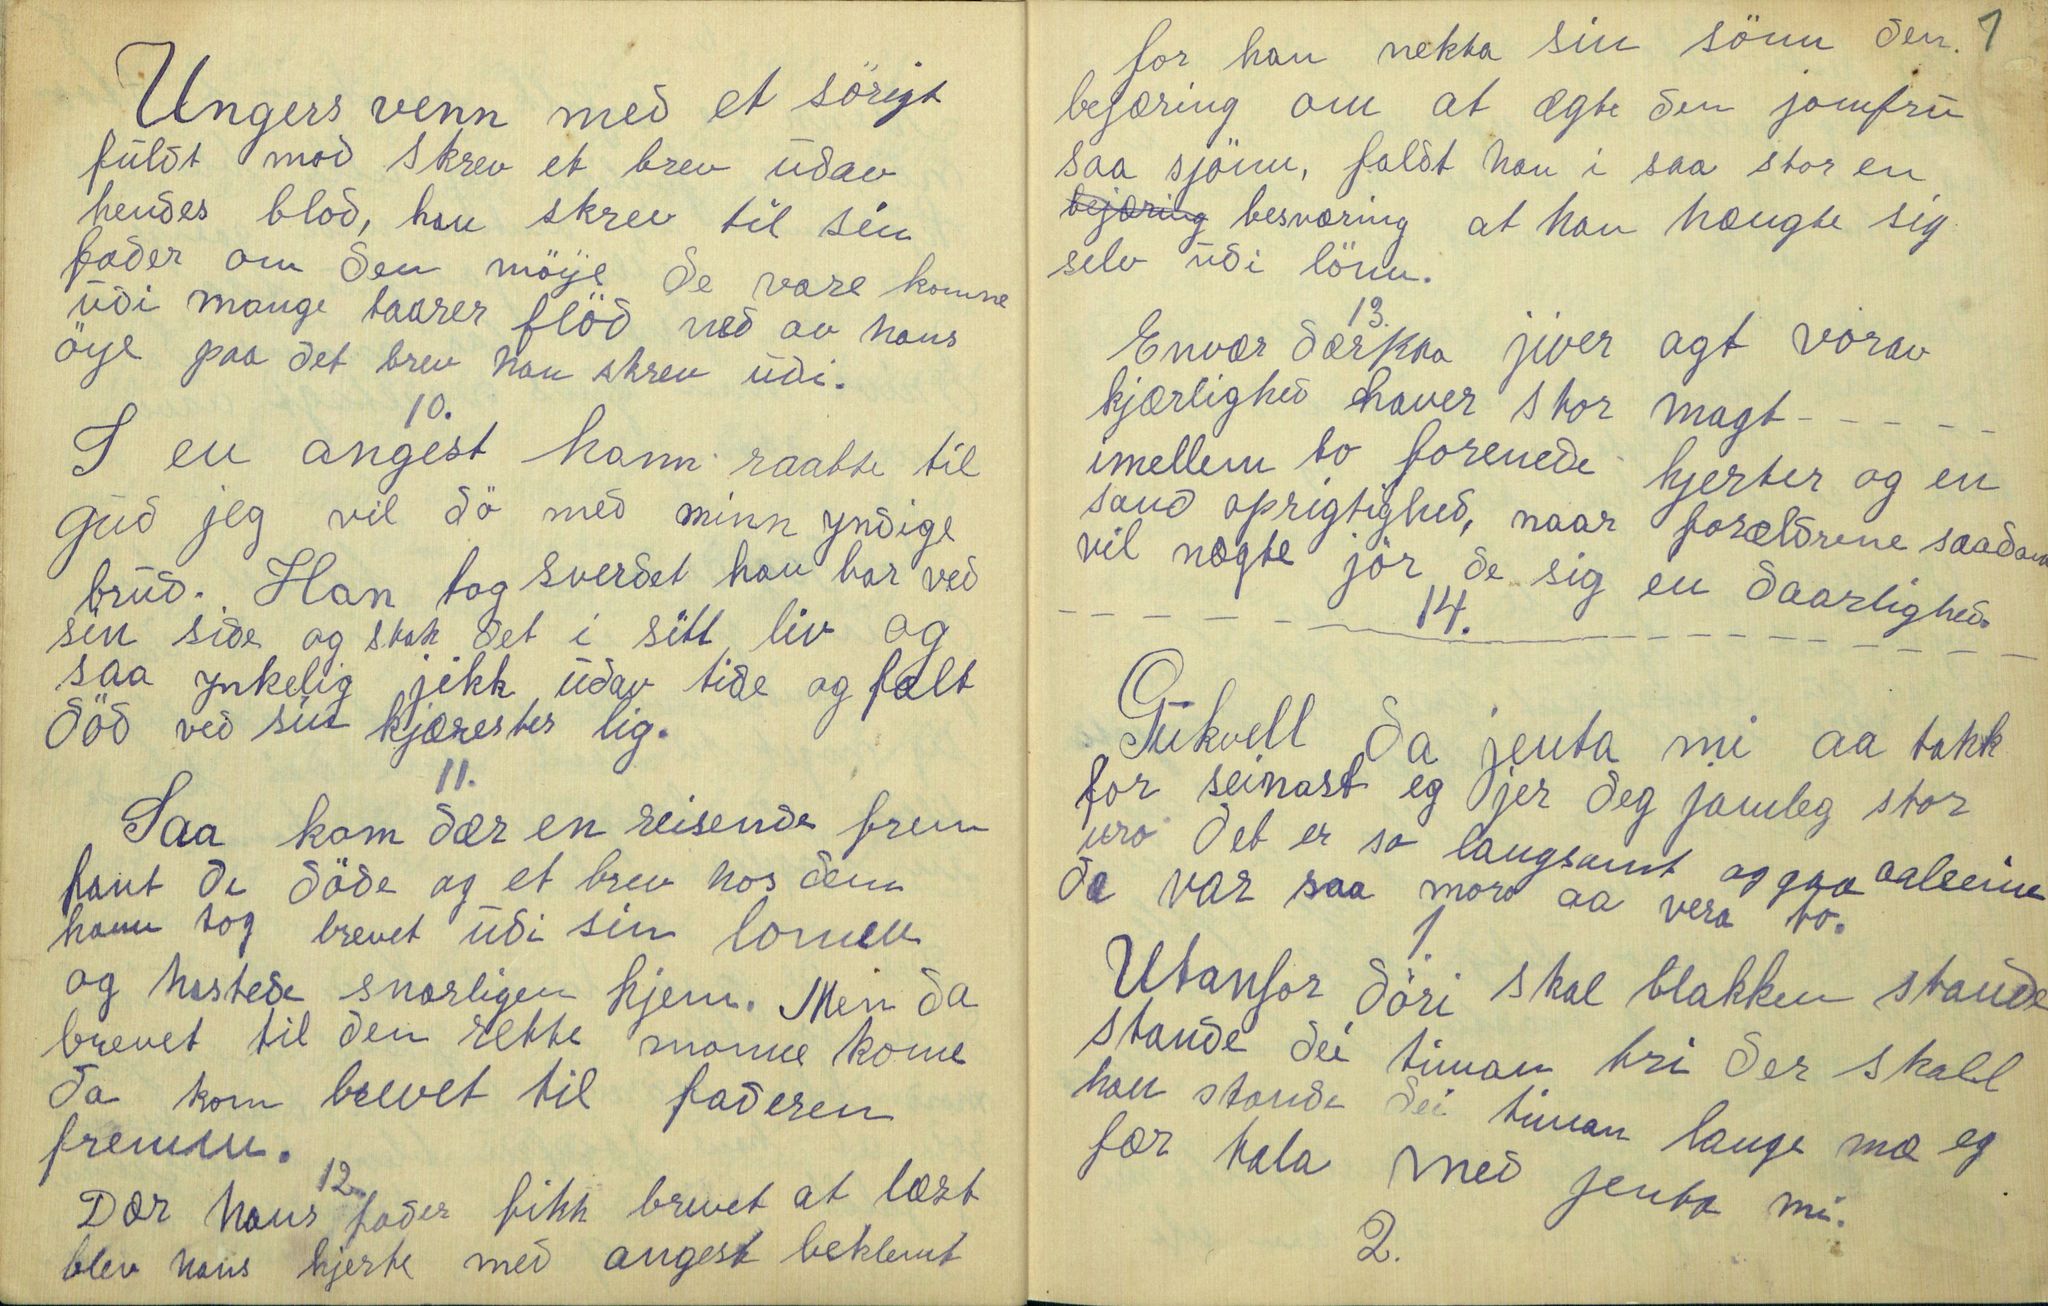 Ungersvenn med et sörigt
fuldt mod skrev et brev udav
hendes blod, han skrev til sin
fader om den möye de vare komne
udi mange taarer flöd ned av hans
öye paa det brev han skrev udi.
10.
I en angest hann raabte til
gud jeg vil dö med minn yndige
brud. Han tog sverdet han bar ved
sin side og stak det i sitt liv og
saa ynkelig jikk udav tide og falt
död ved sin kjærestes lig.
11.
Saa kom dær en reisende frem
fant de döde og et brev hos dem
hann tog brevet udi sin lomen
og hastede snarligen hjem. Men da
brevet til den rette monne kome
da kom brevet til faderen
fremm.
12.
Dær hans fader fikk brevet at læst
blev hans hjerte med angest beklemt
1
for han nekta sin sönn den
bejæring om at ægte den jomfru
saa sjönn, faldt han i saa stor en
bejæring besværing at han hængte sig
selv udi lönn.
13.
Enver dærpaa jiver agt vorav
kjærlighed haver stor magt - - - - -
imellem to forenede hjerter og en
sand oprigtighed, naar forældrene saadant
vil nægte jör de sig en daarlighed.
14.
Gukvell da jenta mi aa takk
for seinast eg jer deg jamleg stor
uro det er so langsamt og gaa aaleine
da var saa moro aa vera to.
1
Utanfor döri skal blakken stande
stande dei timan tri der skall
han stande dei timan lange mæ eg
fær tala med jenta mi.
2.